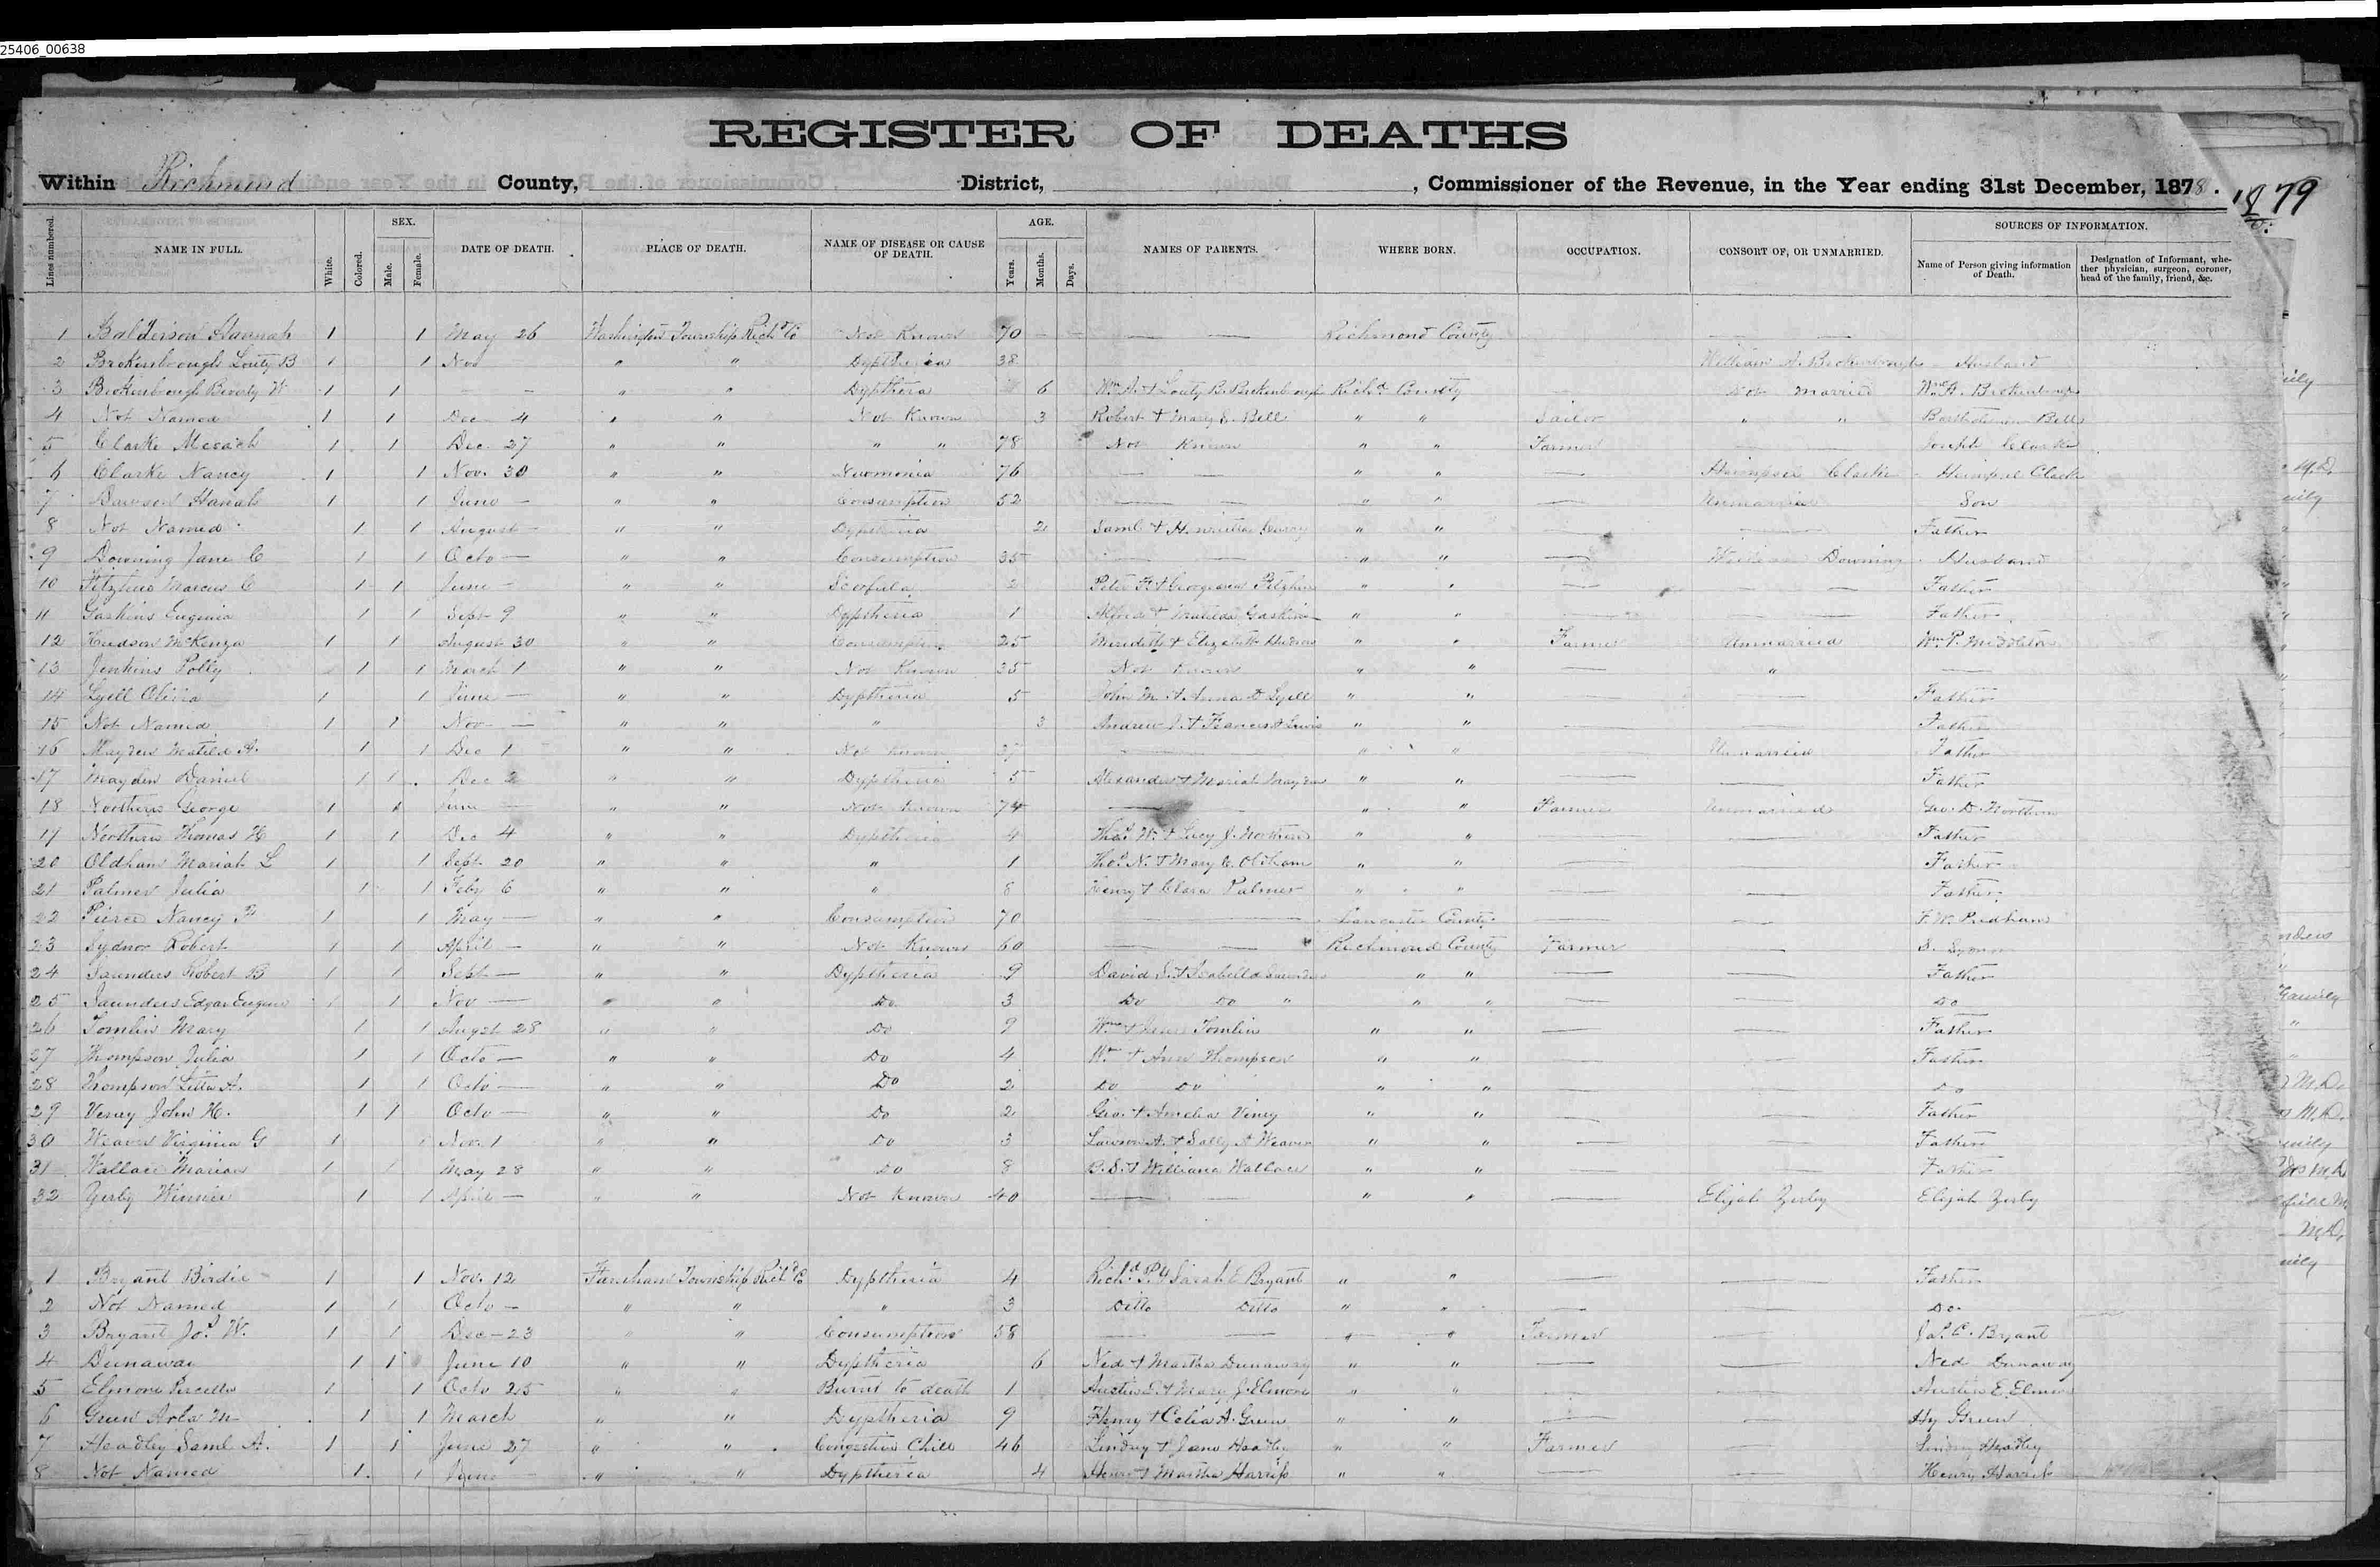 25406_00638
REGISTER OF DEATHS
Within Richmond County, District, , Commissioner of the Revenue, in the Year ending 31st December, 1878.
1879
Lines numbered. NAME IN FULL. White. Colored. SEX. Male. Female. DATE OF DEATH. PLACE OF DEATH. NAME OF DISEASE OR CAUSE OF DEATH. AGE. Years. Months. Days. NAMES OF PARENTS. WHERE BORN. OCCUPATION. CONSORT OF, OR UNMARRIED. SOURCES OF INFORMATION. Name of Person giving information of Death. Designation of Informant, whether physician, surgeon, coroner, head of the family, friend, &c.
1 Balderson Hannah 1 1 May 26 Washington Township Richd Co Not Known 70 — — Richmond County — —
2 Brokenbrough Louty B 1 1 Nov " " Dyptheria 38 William A. Brokenbrough Husband
3 Brokenbrough Beverly W 1 1 — — " " Dypthera 6 Wm A. & Louty B. Brokenbrough Richd County — Not Married Wm A. Brokenbrough
4 Not Named 1 1 Dec 4 " " Not Known 3 Robert & Mary E. Bell " " Sailor " " Bartholomew Bell
5 Clarke Mesach 1 1 Dec. 27 " " " " 78 Not Known " " Farmer — Joseph Clarke
6 Clarke Nancy 1 1 Nov. 30 " " Nuomonia 76 — — " " — Clarke Clarke
7 Dawson Hanah 1 1 June — " " Consumption 52 — — " " — Unmarried Son
8 Not Named 1 1 August — " " Dyptheria 2 Saml & Henrietta " " — — Father
9 Downing Jane C 1 1 Octo — " " Consumption 35 — — " " — William Downing Husband
10 Fitzhue Marcus C 1 1 June — " " Scrofula 2 Peter F. & Georgeana Fitzhue " " — — — Father
11 Gaskins Euginia 1 1 Sept 9 " " Dyptheria 1 Alfred & Matilda Gaskins " " — — — Father
12 Hudson McKenza 1 1 August 30 " " Consumption 25 Meredith & Elizabeth Hudson " " Farmer Unmarried Wm P. Middleton
13 Jenkins Polly 1 1 March 1 " " Not Known 35 Not Known " " — " —
14 Lyell Olivia 1 1 June — " " Dyptheria 5 John M. & Anna D Lyell " " — — Father
15 Not Named 1 1 Nov — " " " 3 Andrew J. & Frances Lewis " " — — Father
16 Mayden Matild A. 1 1 Dec 1 " " Not Known — " " — Unmarried Father
17 Mayden Daniel 1 1 Dec 2 " " Dyptheria 5 Alexander & Mariah Mayden " " — — Father
18 Northern George 1 1 June — " " Not Known 74 — " " Farmer Unmarried Geo. D. Northern
19 Northern Thomas H 1 1 Dec 4 " " Dyptheria 4 Thos W. & Lucy J. Northern " " — — Father
20 Oldham Mariah L 1 1 Sept 20 " " " 1 Thos N. & Mary C. Oldham " " — — Father
21 Palmer Julia 1 1 Feby 6 " " " 8 Henry & Clara Palmer " " — — Father
22 Pierce Nancy F 1 1 May — " " Consumption 70 — Lancaster County — — F. W. Pridham
23 Sydnor Robert 1 1 April — " " Not Known 60 — — Richmond County Farmer — S. Sydnor
24 Saunders Robert B 1 1 Sept — " " Dyptheria 9 David S. & Isabella Saunders " " — — Father
25 Saunders Edgar Eugene 1 1 Nov — " " Do 3 Do Do " " " — — Do
26 Tomlin Mary 1 1 Augst 28 " " Do 9 Wm & Tomlin " " — — Father
27 Thompson Julia 1 1 Octo — " " Do 4 Wm & Ann Thompson " " — — Father
28 Thompson Letta A. 1 1 Octo — " " Do 2 Do Do " " — — Do
29 Veney John H. 1 1 Octo — " " Do 2 Geo. & Amelia Viney " " — — Father
30 Weaver Virginia G 1 1 Nov. 1 " " Do 3 Lawson A. & Sally A Weaver " " — — Father
31 Wallace Marian 1 1 May 28 " " Do 8 & Williana Wallace " " — — Father
32 Yerby Winnie 1 1 April — " " Not Known 40 — — " " — Elijah Yerby Elijah Yerby
1 Bryant Birdie 1 1 Nov. 12 Farnham Township Richd Co Dyptheria 4 Richd P. & Sarah E Bryant " " — — Father
2 Not Named 1 1 Octo — " " " 3 Ditto Ditto " " — — Do.
3 Bryant Jos W. 1 1 Dec — 23 " " Consumption 58 — — " " Farmer — Jas. C. Bryant
4 Dunaway 1 1 June 10 " " Dyptheria 6 Ned & Martha Dunaway " " — — Ned Dunaway
5 Elmore Percella 1 1 Octo 25 " " Burnt to death 1 Austin E. & Mary J. Elmore " " — — Austin E. Elmore
6 Green Arla M 1 1 March " " Dyptheria 9 Henry & Celia A. Green " " — — Hy Green
7 Headley Saml A. 1 1 June 27 " " Congestive Chill 46 Lindsy & Jane Headley " " Farmer — Lindsy Headley
8 Not Named 1 1 June — " " Dyptheria 4 Henry & Martha Harriss " " — — Henry Harriss